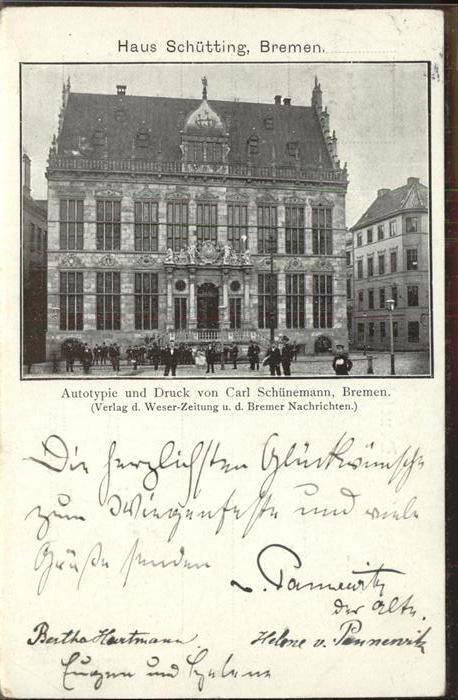 Haus Schütting, Bremen.
Autotypie und Druck von Carl Schünemann, Bremen.
(Verlag d. Weser-Zeitung u. d. Bremer Nachrichten.)
Die herzlichsten Glückwünsche
zum Wiegenfeste und viele
Grüße senden
v. Pannewitz
der Alte.
Bertha Hartmann Helene v. Pannewitz
Eugen und Helene